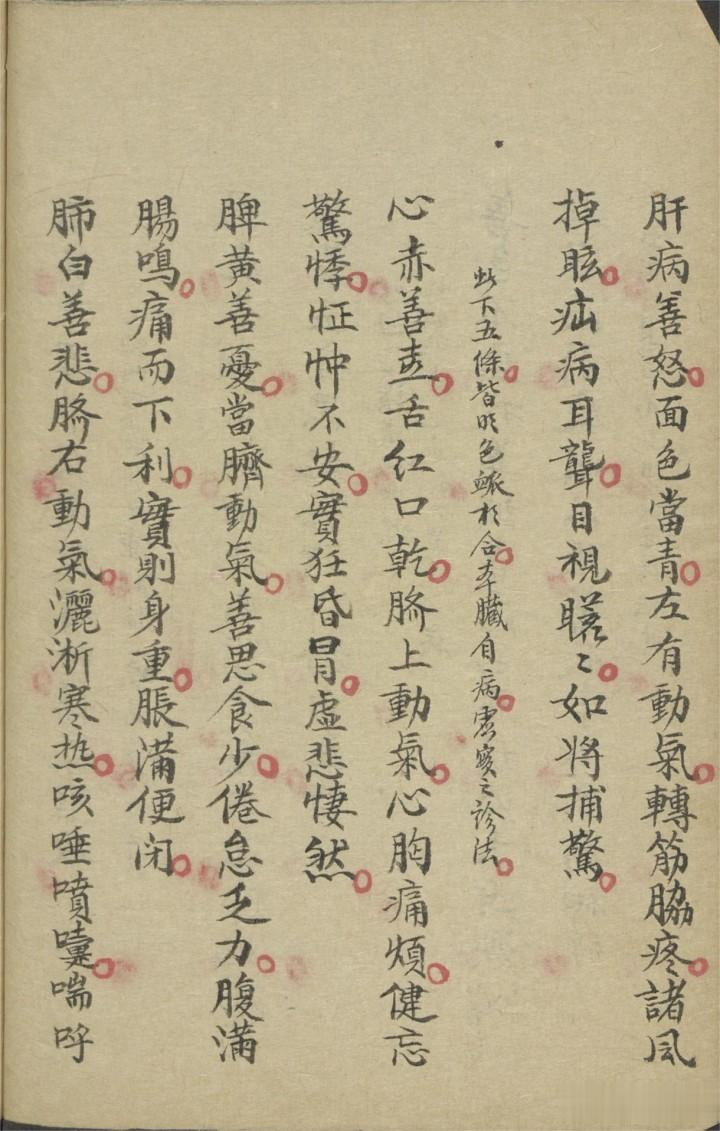 肝病善怒面色當青左有動氣轉筋脇疼諸風
掉眩疝病耳聾目視䀮〻如将捕驚
此下五條皆明色脈於合本臟自病虛實之診法
心赤善喜舌紅口乾臍上動氣心胸痛煩健忘
驚悸怔忡不安實狂昏冒虛悲悽然
脾黃善憂當臍動氣善思食少倦怠乏力腹滿
腸鳴痛而下利實則身重脹滿便閉
肺白善悲臍右動氣灑淅寒热咳唾噴嚏喘呼